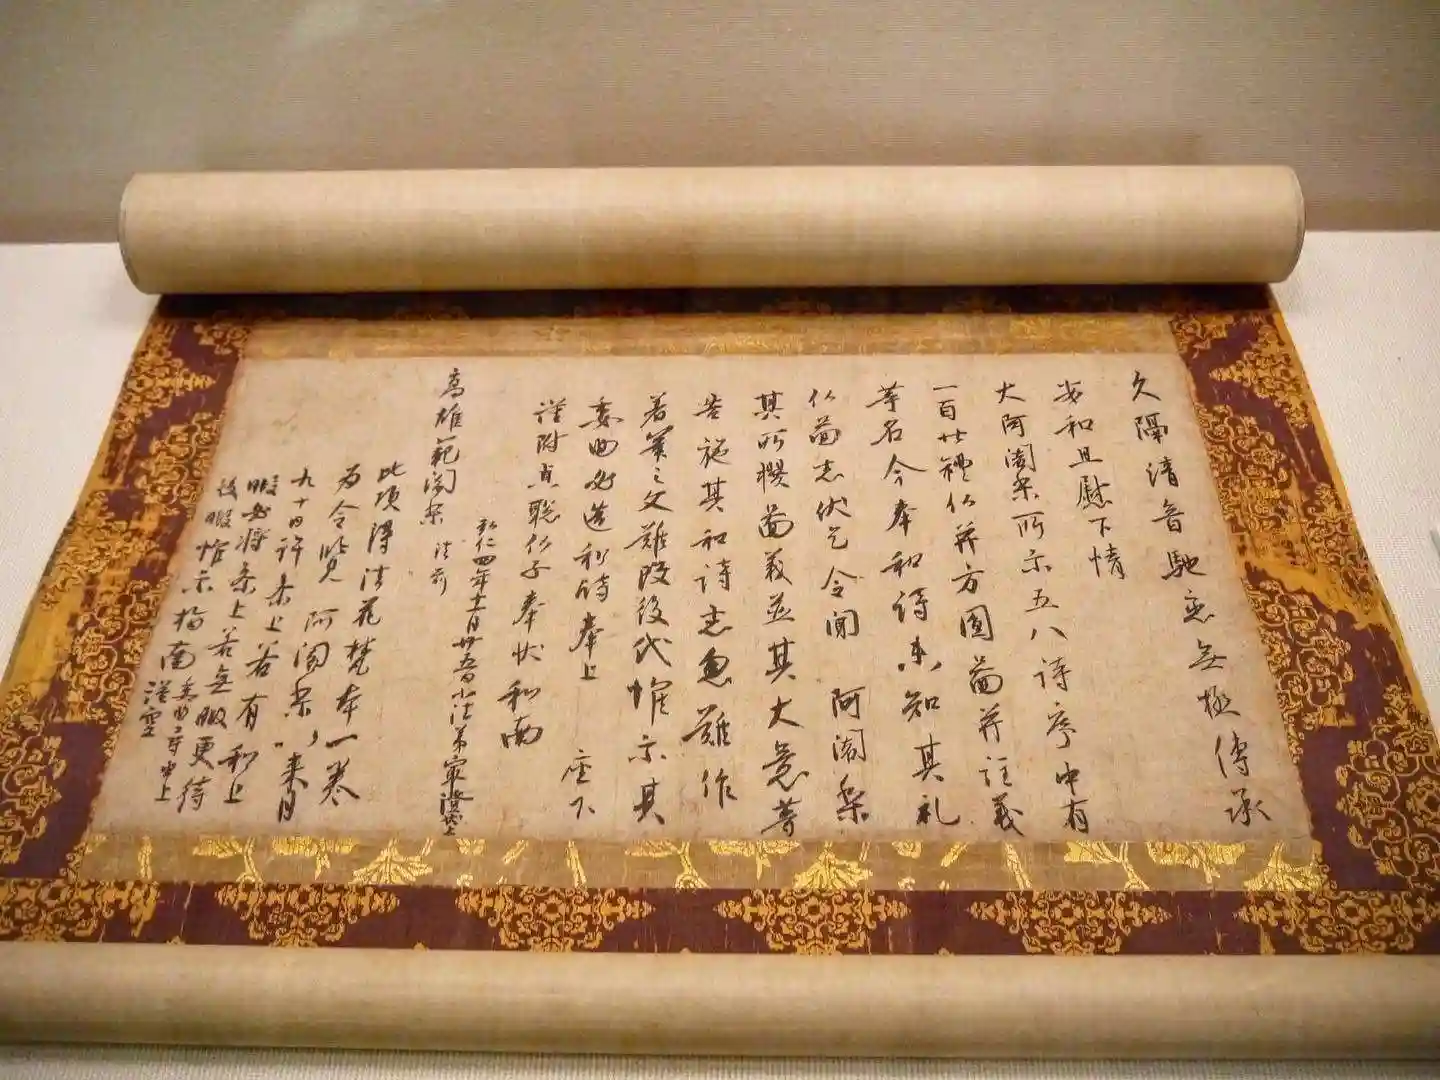 久隔清音馳恋無極傳承
安和且慰下情
大阿闍梨所示五八詩序中有
一百廿禮仏并方圓圖并注義
等名今奉和詩未知其礼
仏圖者伏乞令聞 阿闍梨
其所撰圖義並其大意等
告施其和詩者忽難作
著筆之文難改後代惟示其
委曲必造和詩奉上 座下
謹附貞聡仏子奉状和南
弘仁四年十一月廿五日小法弟最澄状上
高雄範闍梨 法前
此頃得法花梵本一巻
為令覧 阿闍梨以来月
九十日許参上若有和上
暇必将参上若無暇更待
後暇惟示指南
謹空